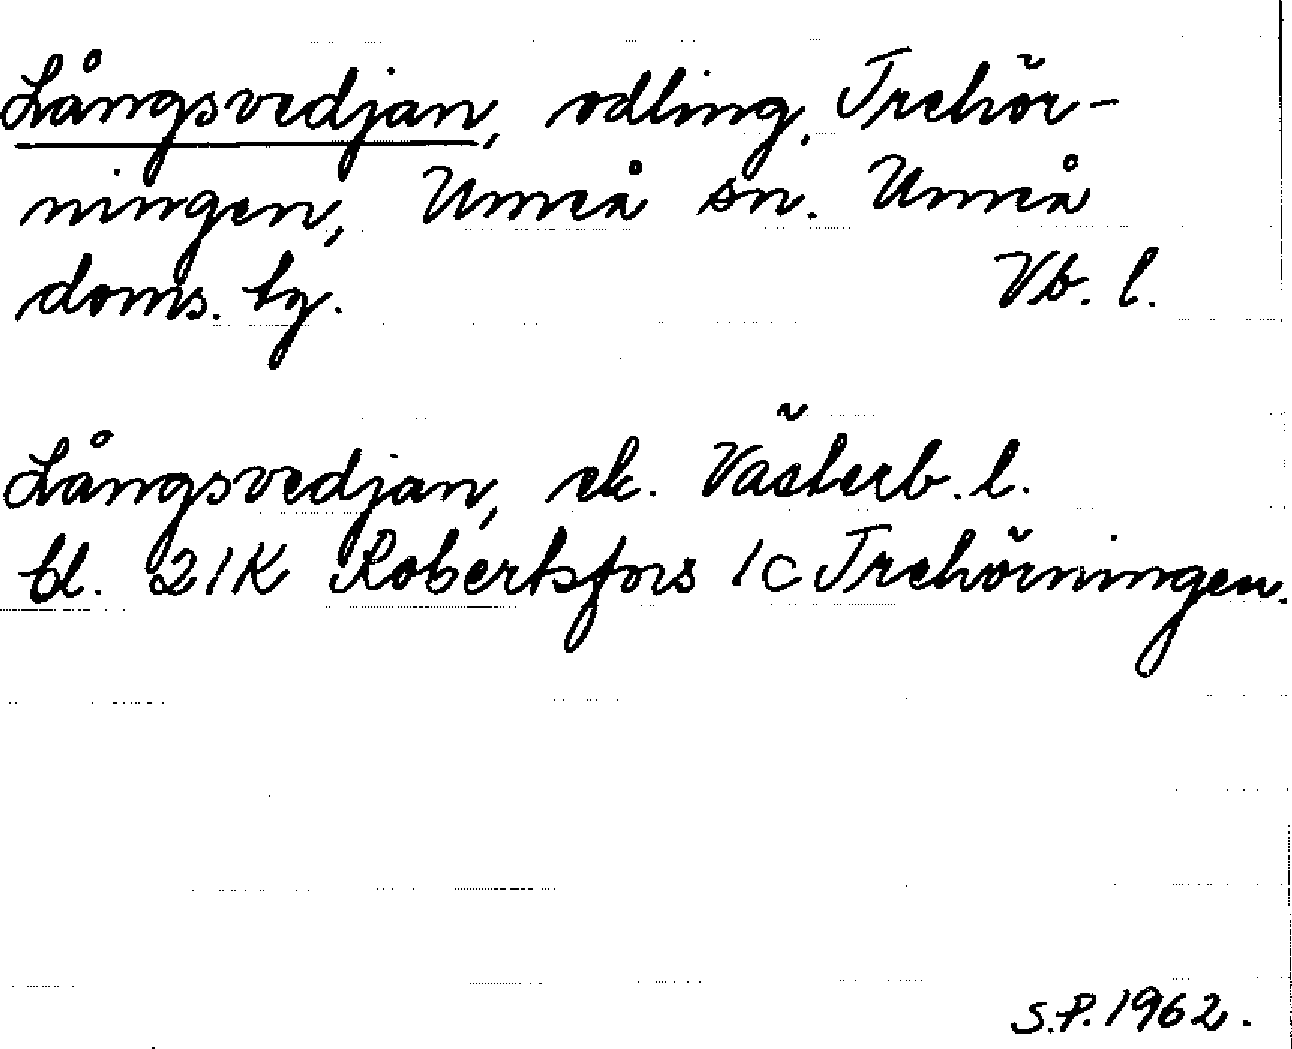 Långsvedjan, odling, Trehör-
ningen, Umeå sn. Umeå
doms. tg. Vb. l.
Långsvedjan, ek. Västerb. l.
bl. 21K Robertsfors 1c Trehörningen.
S.P. 1962.